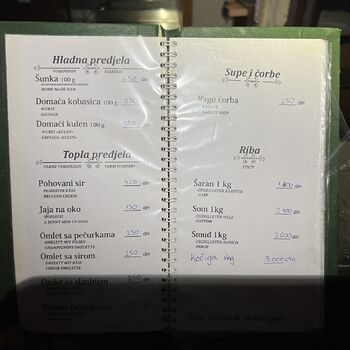 Hladna predjela
VORSPEISEN STARTERS
Šunka 100 g 450 din
HOME MADE HAM
Domaća kobasica 100 g 350 din
WURST
SAUSAGE
Domaći kulen 250 g din
WURST »KULEN«
SAUSAGE »KULEN«
Topla predjela
WARME VORSPEISEN WARM STARTERS
Pohovani sir 420 din
PANIERTER KÄSE
BREADED CHEESE
Jaja na oko 150 din
SPIEGELEI
A SUNNY SIDE UP EGGS
Omlet sa pečurkama 250 din
OMELETT MIT PILZEN
CHAMPIGNONS OMELETTE
Omlet sa sirom 250 din
OMELETT MIT KÄSE
CHEESE OMELETTE
Omlet sa slaninom 250 din
Supe i čorbe
Ragu čorba 250 din
RAGOUT SOUP
Riba
FISCH
Šaran 1 kg din
GEGRILLTER KARPFEN
CARP
Som 1 kg 2.400 din
GEGRILLTER WELS
CATFISH
Smuđ 1 kg 2.600 din
GEGRILLTER ZANDER
PERCH
Kečiga 1kg 3.000 din